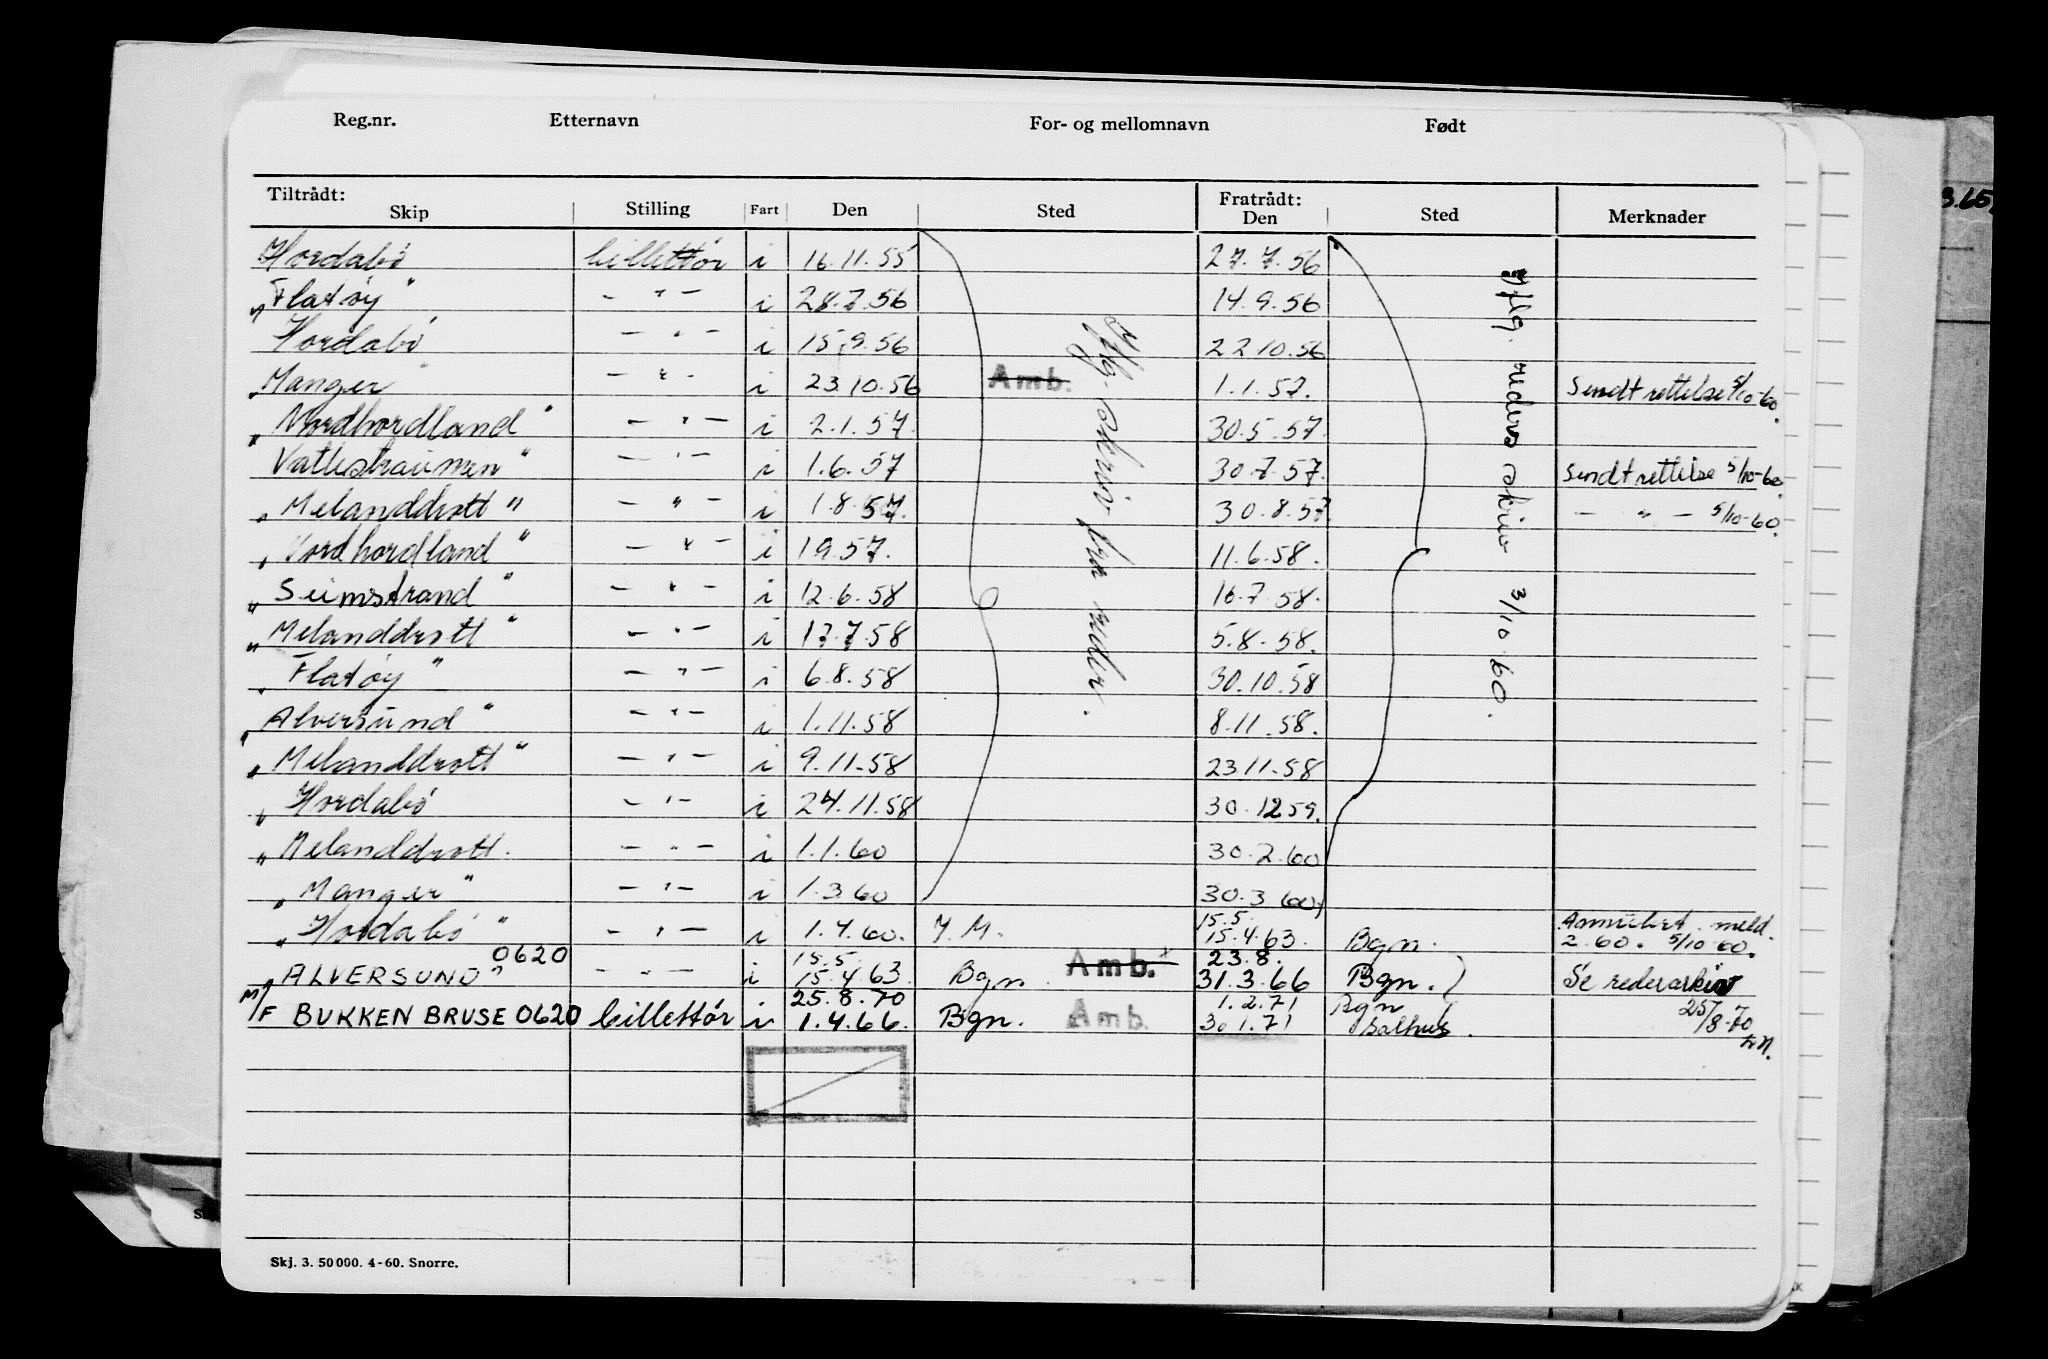 Reg.nr. Etternavn For- og mellomnavn Født
Tiltrådt: Fratrådt:
Skip Stilling Fart Den Sted Den Sted Merknader
Hordabö billettör i 16.11.55 27.7.56
"Flatöy" - " - i 28.7.56 14.9.56
Hordabö - " - i 15.9.56 22 10.56
"Manger" - " - i 23.10.56 Amb. 1.1.57. Sendt rettelse 5/10-60.
"Nordhordland" - " - i 2.1.57. 30.5.57.
Vatlestraumen" - " - i 1.6.57 30.7.57. Sendt rettelse 5/10-60.
"Melanddrott" - " - i 1.8.57. 30.8.57. - " - 5/10-60.
"Nordhordland" - " - i 1 9.57. 11.6.58.
"Seimstrand" - " - i 12.6.58 16.7.58.
"Melanddrott" - " - i 17.7.58 5.8.58.
"Flatöy" - " - i 6.8.58 30.10.58
"Alversund" - " - i 1.11.58 8.11.58.
"Melanddrott" - " - i 9.11.58 23 11.58
"Hordabö - " - i 24.11.58 30.12 59.
"Melanddrott. - " - i 1.1.60 30.2.60
"Manger" - " - i 1.3.60 30.3 60
Iflg. skriv fra reder.
Iflg. reders skriv 3/10-60.
15.5.
"Hordabö" - " - i 1.4.60. 15.4.63. Bgn. meld.
2.60. 5/10 60.
0620 15.5. 23.8.
"ALVERSUND" - " - i 15.4.63 Bgn. Amb. 31.3.66 Bgn. Se rederarkiv
25.8.70 1.2.71 Bgn 25/8-70
M/F BUKKEN BRUSE 0620 billettör i 1.4.66. Bgn. Amb. 1.71 Salhus.
Skj. 3. 50000. 4-60. Snorre.